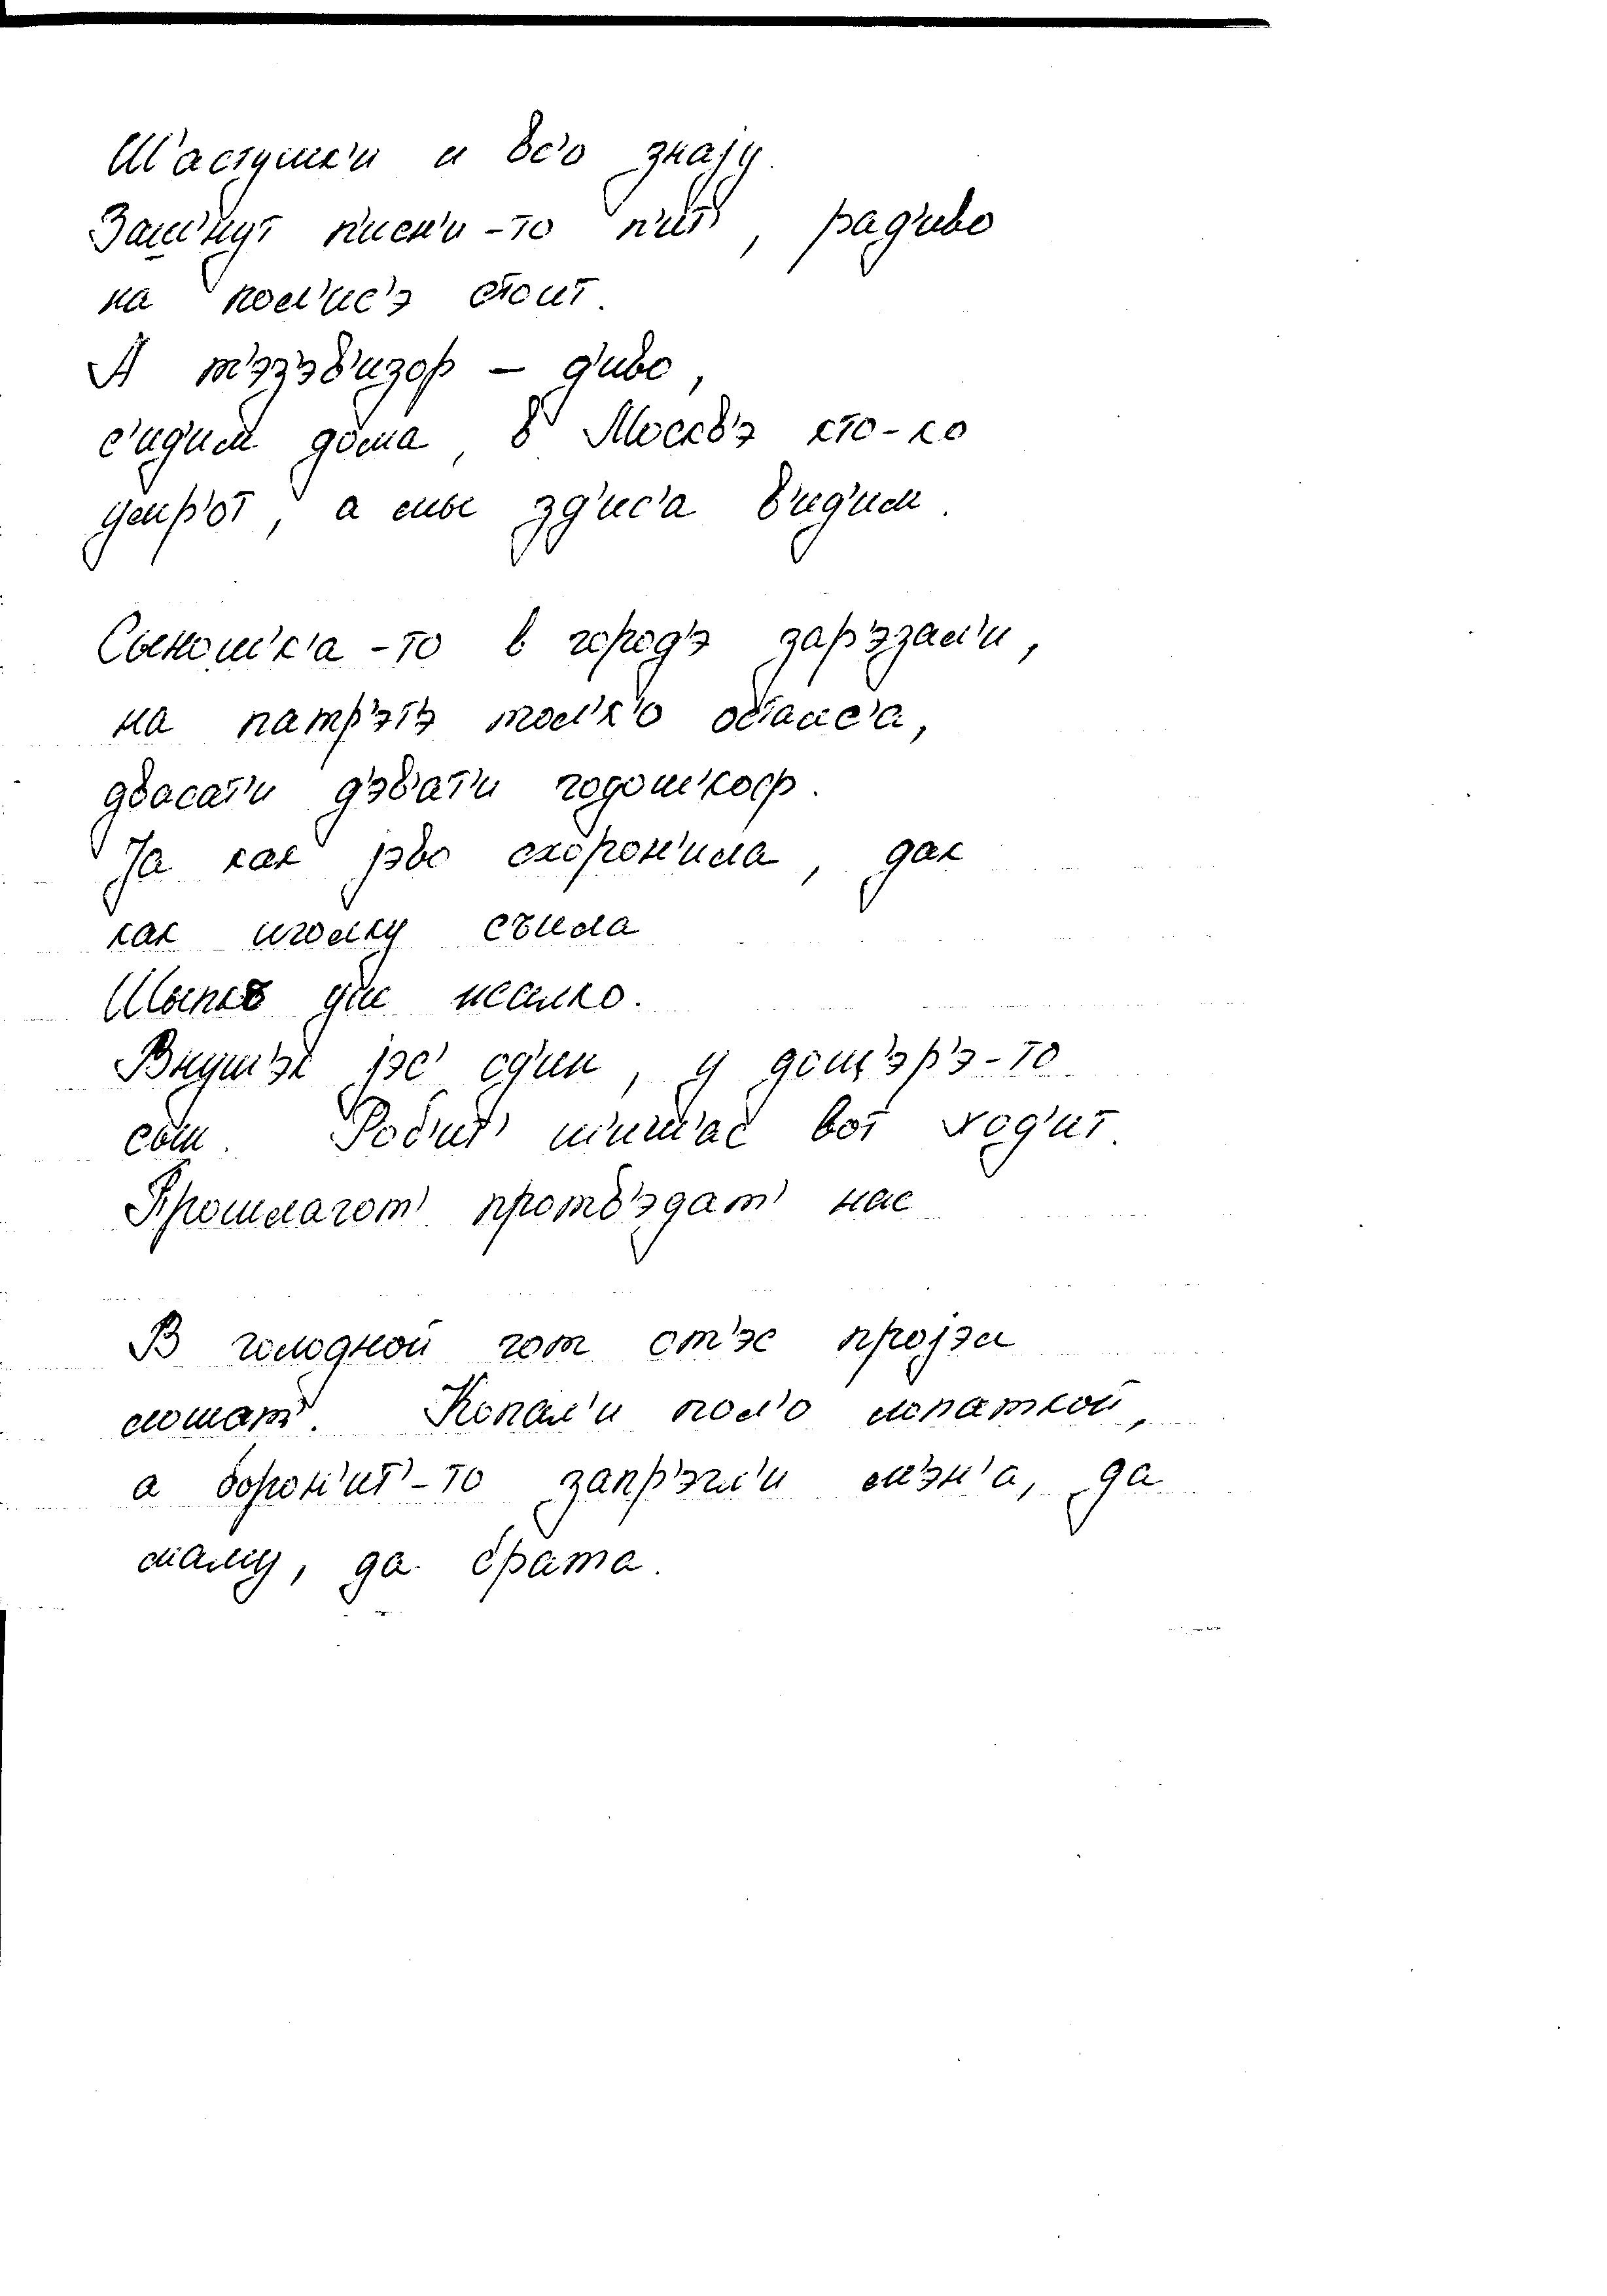 Ш'астушк'и и вс'о знаjу.
Заш'нут п'исн'и-то п'ит', рад'иво
на пол'ис'э стоит.
А т'эзэв'изор – д'иво,
с'ид'им дома, в Москв'э кто-ко
умр'от, а мы зд'ис'а в'ид'им.
Сыношк'а-то в город'э зар'эзал'и,
на патр'эт'э тол'к'о осталс'а,
двасат'и д'эв'ат'и годошкоф.
Jа как jэво схорон'ила, дак
как иголку съила
Шыпко уш жалко.
Внуш'эк jэс' од'ин, у дощ'эр'э-то
сын. Роб'ит' ш'иш'ас вот ход'ит.
Прошлагот' протв'эдат' нас
В голодной гот от'эс проjэл
лошат'. Копал'и пол'о лопаткой,
а борон'ит'-то запр'эгл'и м'эн'а, да
маму, да брата.